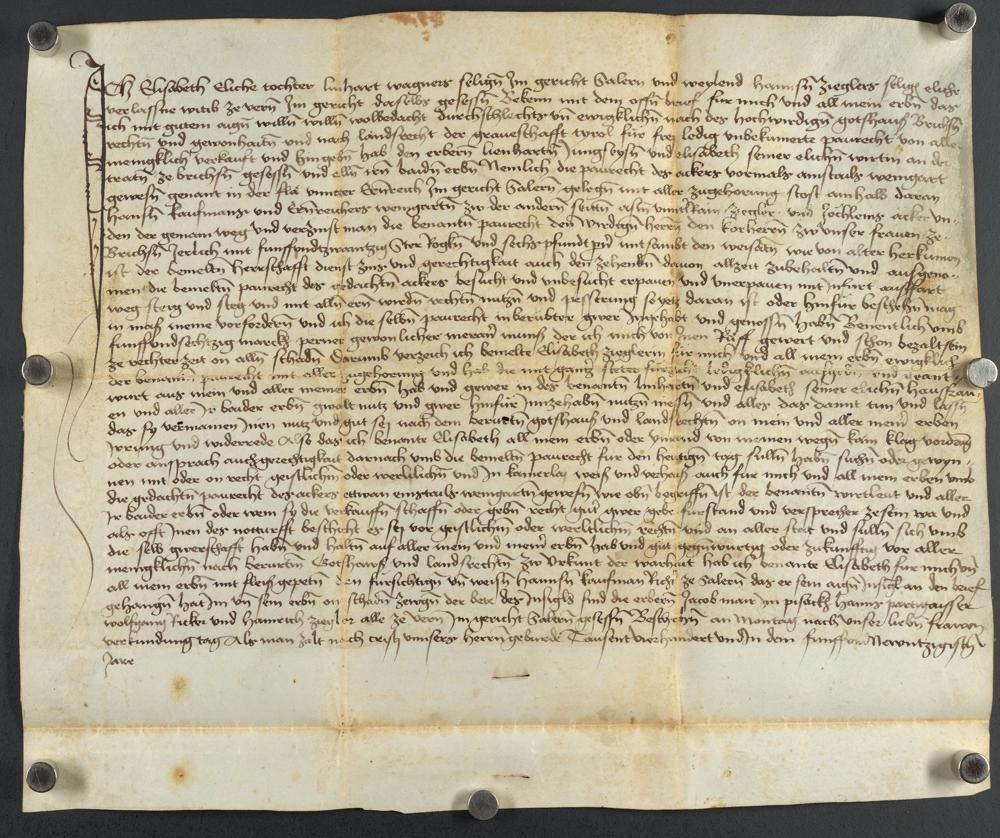 Ich Elisabeth Eliche tochter linhart wagners seligñ Jm gericht Salern vnd weylend Hannsñ Zieglers selign eliche
verlassne witib ze vern Jm gericht daselbs gesessñ Bekenn mit dem offñ brief für mich vnd all mein erbñ das
ich mit gutem aigñ willñ willñ wolbedacht durchschlechts vñ ewigklichñ nach des hochwirdigñ gotshauß Brichsñ
rechtñ vnd gewonhaitñ vnd nach landsrecht der graueschafft tyrol für frey ledig vnbekumerte paurecht von aller
menigklich verkauft vnd hingebñ hab den erbern lienhartñ Jungsbysñ vnd elisabeth seiner elichñ wirtin an der
tratñ ze brichsñ gesessñ vnd allñ irñ baidñ erbñ Nemlich die paurecht des ackers vormals ainstails weingart
gewesñ genant in der vnnter Ernreich Jm gericht Salern gelegñ mit aller zugehorung stost ainhalb daran
Hannsñ kaufmans vnd Ernreichers weingartñ zw der andern seittñ ziegler vnd acker vn-
den der gemain weg vnd verzinst man die benantñ paurecht den Wirdigñ herrñ den korherrñ zw vnser frawen ze
Brichsñ Jerlich mit funffvndzwaintzig Ster Rogkñ vnd sechs pfundt mitsambt den weisatñ wie von alter herkumen
ist der bemeltñ herrschafft dienst zins vnd gerechtigkait auch den zehendñ dauon allzeit zubehaltñ vnd aufgeno-
men die bemeltñ paurecht des gedachtñ ackers besucht vnd vnbesucht erpauen vnd vnerpauen mit Infart ausffart
weg steig vnd steg vnd mit allñ ern wirdñ rechtñ nutzñ vnd pesserung so yetz daran ist oder hinfür beschehñ mag
in maß meine vorfordern vnd ich die selbñ paurecht in beruebter gwer Jngehabt vnd genossñ habñ Benentlich vmb
funffvndsechtzig march perner gewonlicher meraner münß der ich mich von Jnen gewert vnd schon bezalt bin
ze rechter zeit on allñ schadñ Darumb verzeich ich bemelte Elisabeth zieglerin für mich vnd all mein erbñ ewigklich
der benantñ paurecht mit aller zugehorung vnd hab die mit gantz steter furzicht aufgebñ vnd geant-
wurt aus mein vnd aller meiner erbñ hab vnd gewer in des benantñ linhartñ vnd elisabeth seiner elichñ hausfrau-
en vnd aller Jr baider erbñ gwalt nutz vnd gwer hinfür Jnnzehabñ nutzñ vnd alles das damit tun vnd lassñ
das sy vermainen Jnen nutz vnd gut sey nach dem berurtñ gotshauß vnd landsrechtñ on mein vnd aller meiner erben
Jrrung vnd widerrede Also das ich benante Elisabeth all mein erbñ oder yemand von meinen wegñ kain klag vordrung
oder ansprach auch gerechtigkait darnach vmb die bemeltñ paurecht für den heutigñ tag süllñ habñ suchñ oder gewyn-
nen mit oder on recht geistlichñ oder weltlichñ vnd Jn kainerlay weiß vnd auch für mich vnd all mein erben vmb
die gedachtñ paurecht des ackers ettwan ainstails weingartñ gewesñ wie obñ begriffñ ist der benantñ wirtleut vnd aller
Jr baider erbñ oder wem sy die verkauffñ schaffñ oder gebñ recht gut gwer furstand vnd versprecher zesein wa vnd
als offt Jnen des notturfft beschicht es sey vor geistlichñ oder weltlichñ rechtñ vnd an aller stat vnd süllñ sich vmb
die selb gwerschafft habñ vnd haltñ auf aller mein vnd meiner erbñ hab vnd gut gegenwurtig oder zukunftig vor aller
menigklichñ nach berurtñ Gotshauß vnd landsrechtñ zw Vrkunt der warhait hab ich benante Elisabeth für mich vñ
all mein erbñ mit fleiß gepetñ den fursichtigñ vñ weisñ Hannsñ kaufman Richter ze Salern das er sein aigñ Jnsigl an den brief
gehangñ hat Jm vñ sein erbñ on schadñ zewgñ der bete des Jnsigls sind die erbern Jacob mair Hanns
wolfgang vnd hainrich ziegler alle ze vern Jm gericht Salern gesessñ Beschechñ an Montag nach vnser liebñ frawen
verkundung tag Als man zalt nach cristi vnnsers herrn geburde Tausent vierhundert vnd Jn dem funffvndnewntzigistñ
Jare